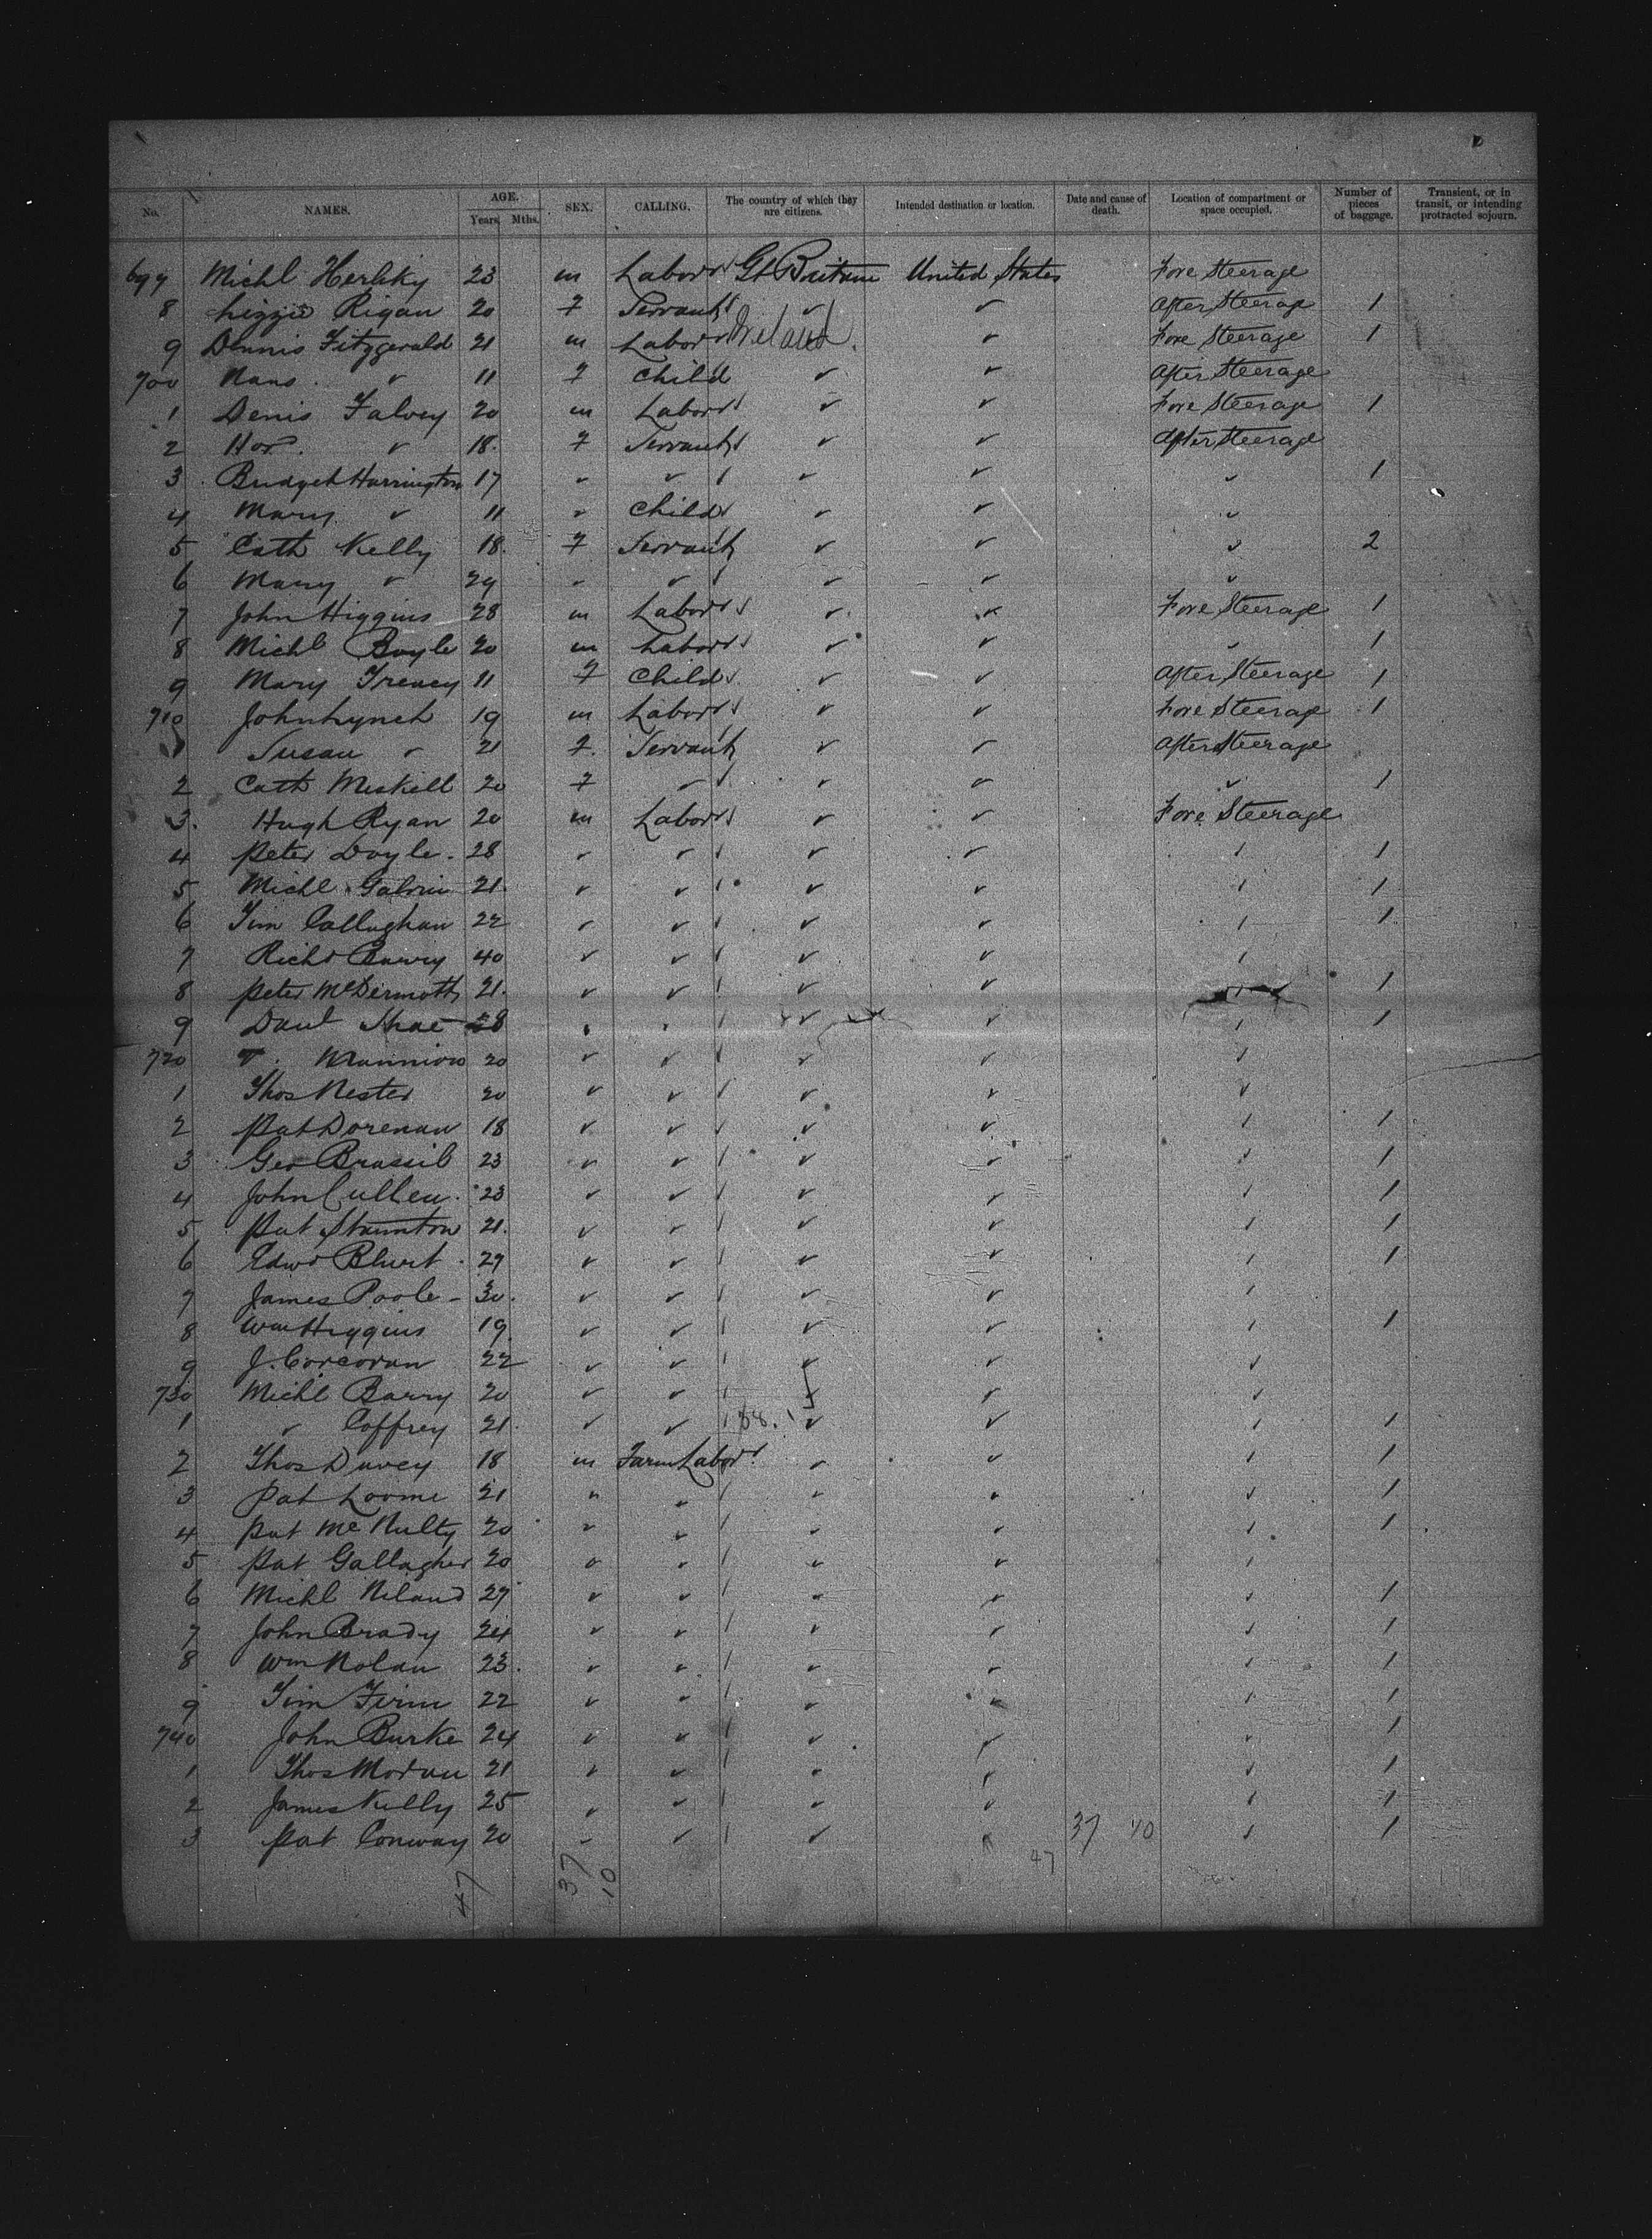 No. NAMES. AGE. Years Mths. SEX. CALLING. The country of which they are citizens. Intended destination or location. Date and cause of death. Location of compartment or space occupied. Number of pieces of baggage. Transient, or in transit, or intending protracted sojourn.
697 Michl Herlihy 23 m Labor Gt Britain United States Fore Steerage
8 Lizzie Rigan 20 F Servant ✓ ✓ After Steerage 1
9 Dennis Fitzgerald 21 m Labor Ireland ✓ Fore Steerage 1
700 Nano. ✓ 11 F Child ✓ ✓ After Steerage
1 Denis Falvey 20 m Labor ✓ ✓ Fore Steerage 1
2 Hor. ✓ 18. F Servant ✓ ✓ After Steerage
3 Bridget Harrington 17 ✓ ✓ ✓ ✓ ✓ 1
4 Mary ✓ 11 ✓ Child ✓ ✓ ✓
5 Cath Kelly 18. F Servant ✓ ✓ ✓ 2
6 Mary ✓ 29 ✓ ✓ ✓ ✓ ✓
7 John Higgins 28 m Labor ✓ ✓ Fore Steerage 1
8 Michl Boyle 20 m Labor ✓ ✓ ✓ 1
9 Mary Treacy 11 F Child ✓ ✓ After Steerage 1
710 John Lynch 19 m Labor ✓ ✓ Fore Steerage 1
1 Susan ✓ 21 F. Servant ✓ ✓ After Steerage
2 Cath Meskell 20 F ✓ ✓ ✓ ✓ 1
3. Hugh Ryan 20 m Labor ✓ ✓ Fore Steerage
4 Peter Doyle. 28 ✓ ✓ ✓ ✓ ✓ 1
5 Michl Galvin 21. ✓ ✓ ✓ ✓ ✓ 1
6 Tim Callaghan 22 ✓ ✓ ✓ ✓ ✓ 1
7 Richd 40 ✓ ✓ ✓ ✓ ✓
8 Peter McDermott 21. ✓ ✓ ✓ ✓ ✓ 1
9 Danl Shae 28 ✓ ✓ ✓ ✓ ✓ 1
720 T. Mannion 20 ✓ ✓ ✓ ✓ ✓
1 Thos Nester 20 ✓ ✓ ✓ ✓ ✓
2 Pat Dorenan 18 ✓ ✓ ✓ ✓ ✓ 1
3 Geo Brassil 23 ✓ ✓ ✓ ✓ ✓ 1
4 John Cullen. 23 ✓ ✓ ✓ ✓ ✓ 1
5 Pat Staunton 21. ✓ ✓ ✓ ✓ ✓ 1
6 Edwd 27 ✓ ✓ ✓ ✓ ✓ 1
7 James Poole - 30. ✓ ✓ ✓ ✓ ✓
8 Wm Higgins 19. ✓ ✓ ✓ ✓ ✓ 1
9 J. Corcoran 22 ✓ ✓ ✓ ✓ ✓
730 Michl Barry 20 ✓ ✓ ✓ ✓ ✓
1 ✓ Coffrey 21. ✓ ✓ ✓ ✓ ✓ 1
2 Thos Davey 18 m Farm Labor ✓ ✓ ✓ 1
3 Pat Loome 21 ✓ ✓ ✓ ✓ ✓ 1
4 Pat McNulty 20 ✓ ✓ ✓ ✓ ✓ 1
5 Pat Gallagher 20 ✓ ✓ ✓ ✓ ✓
6 Michl Niland 27 ✓ ✓ ✓ ✓ ✓ 1
7 John Brady 24 ✓ ✓ ✓ ✓ ✓ 1
8 Wm Nolan 23. ✓ ✓ ✓ ✓ ✓ 1
9 Tim Firm 22 ✓ ✓ ✓ ✓ ✓ 1
740 John Burke 24 ✓ ✓ ✓ ✓ ✓ 1
1 Thos Moran 21 ✓ ✓ ✓ ✓ ✓ 1
2 James Kelly 25 ✓ ✓ ✓ ✓ ✓ 1
3 Pat Conway 20 ✓ ✓ ✓ ✓ 37 10 ✓ 1
47 37 10 47